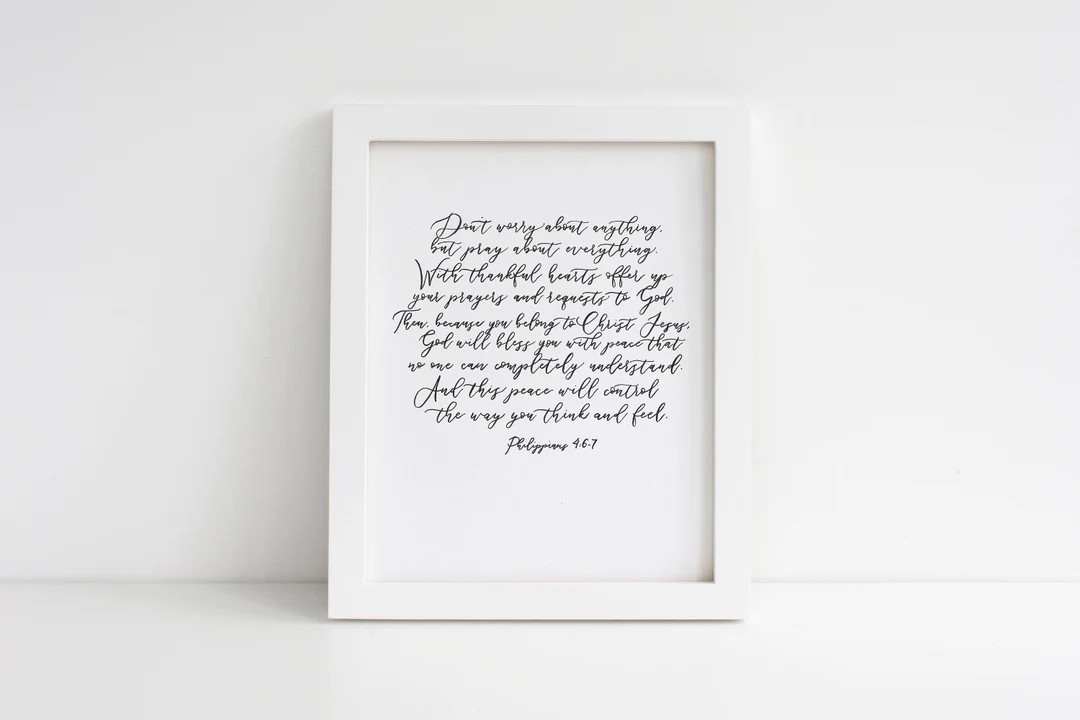 Don't worry about anything,
but pray about everything.
With thankful hearts offer up
your prayers and requests to God.
Then, because you belong to Christ Jesus,
God will bless you with peace that
no one can completely understand.
And this peace will control
the way you think and feel.
Philippians 4:6-7